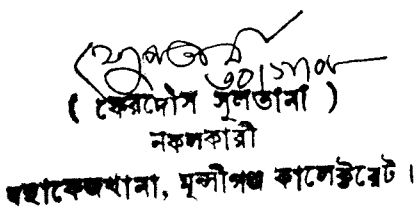 ৩০।১০।০৮
( ফেরদৌস সুলতানা )
নকলকারী
মহাফেজখানা, মুন্সীগঞ্জ কালেক্টরেট ।